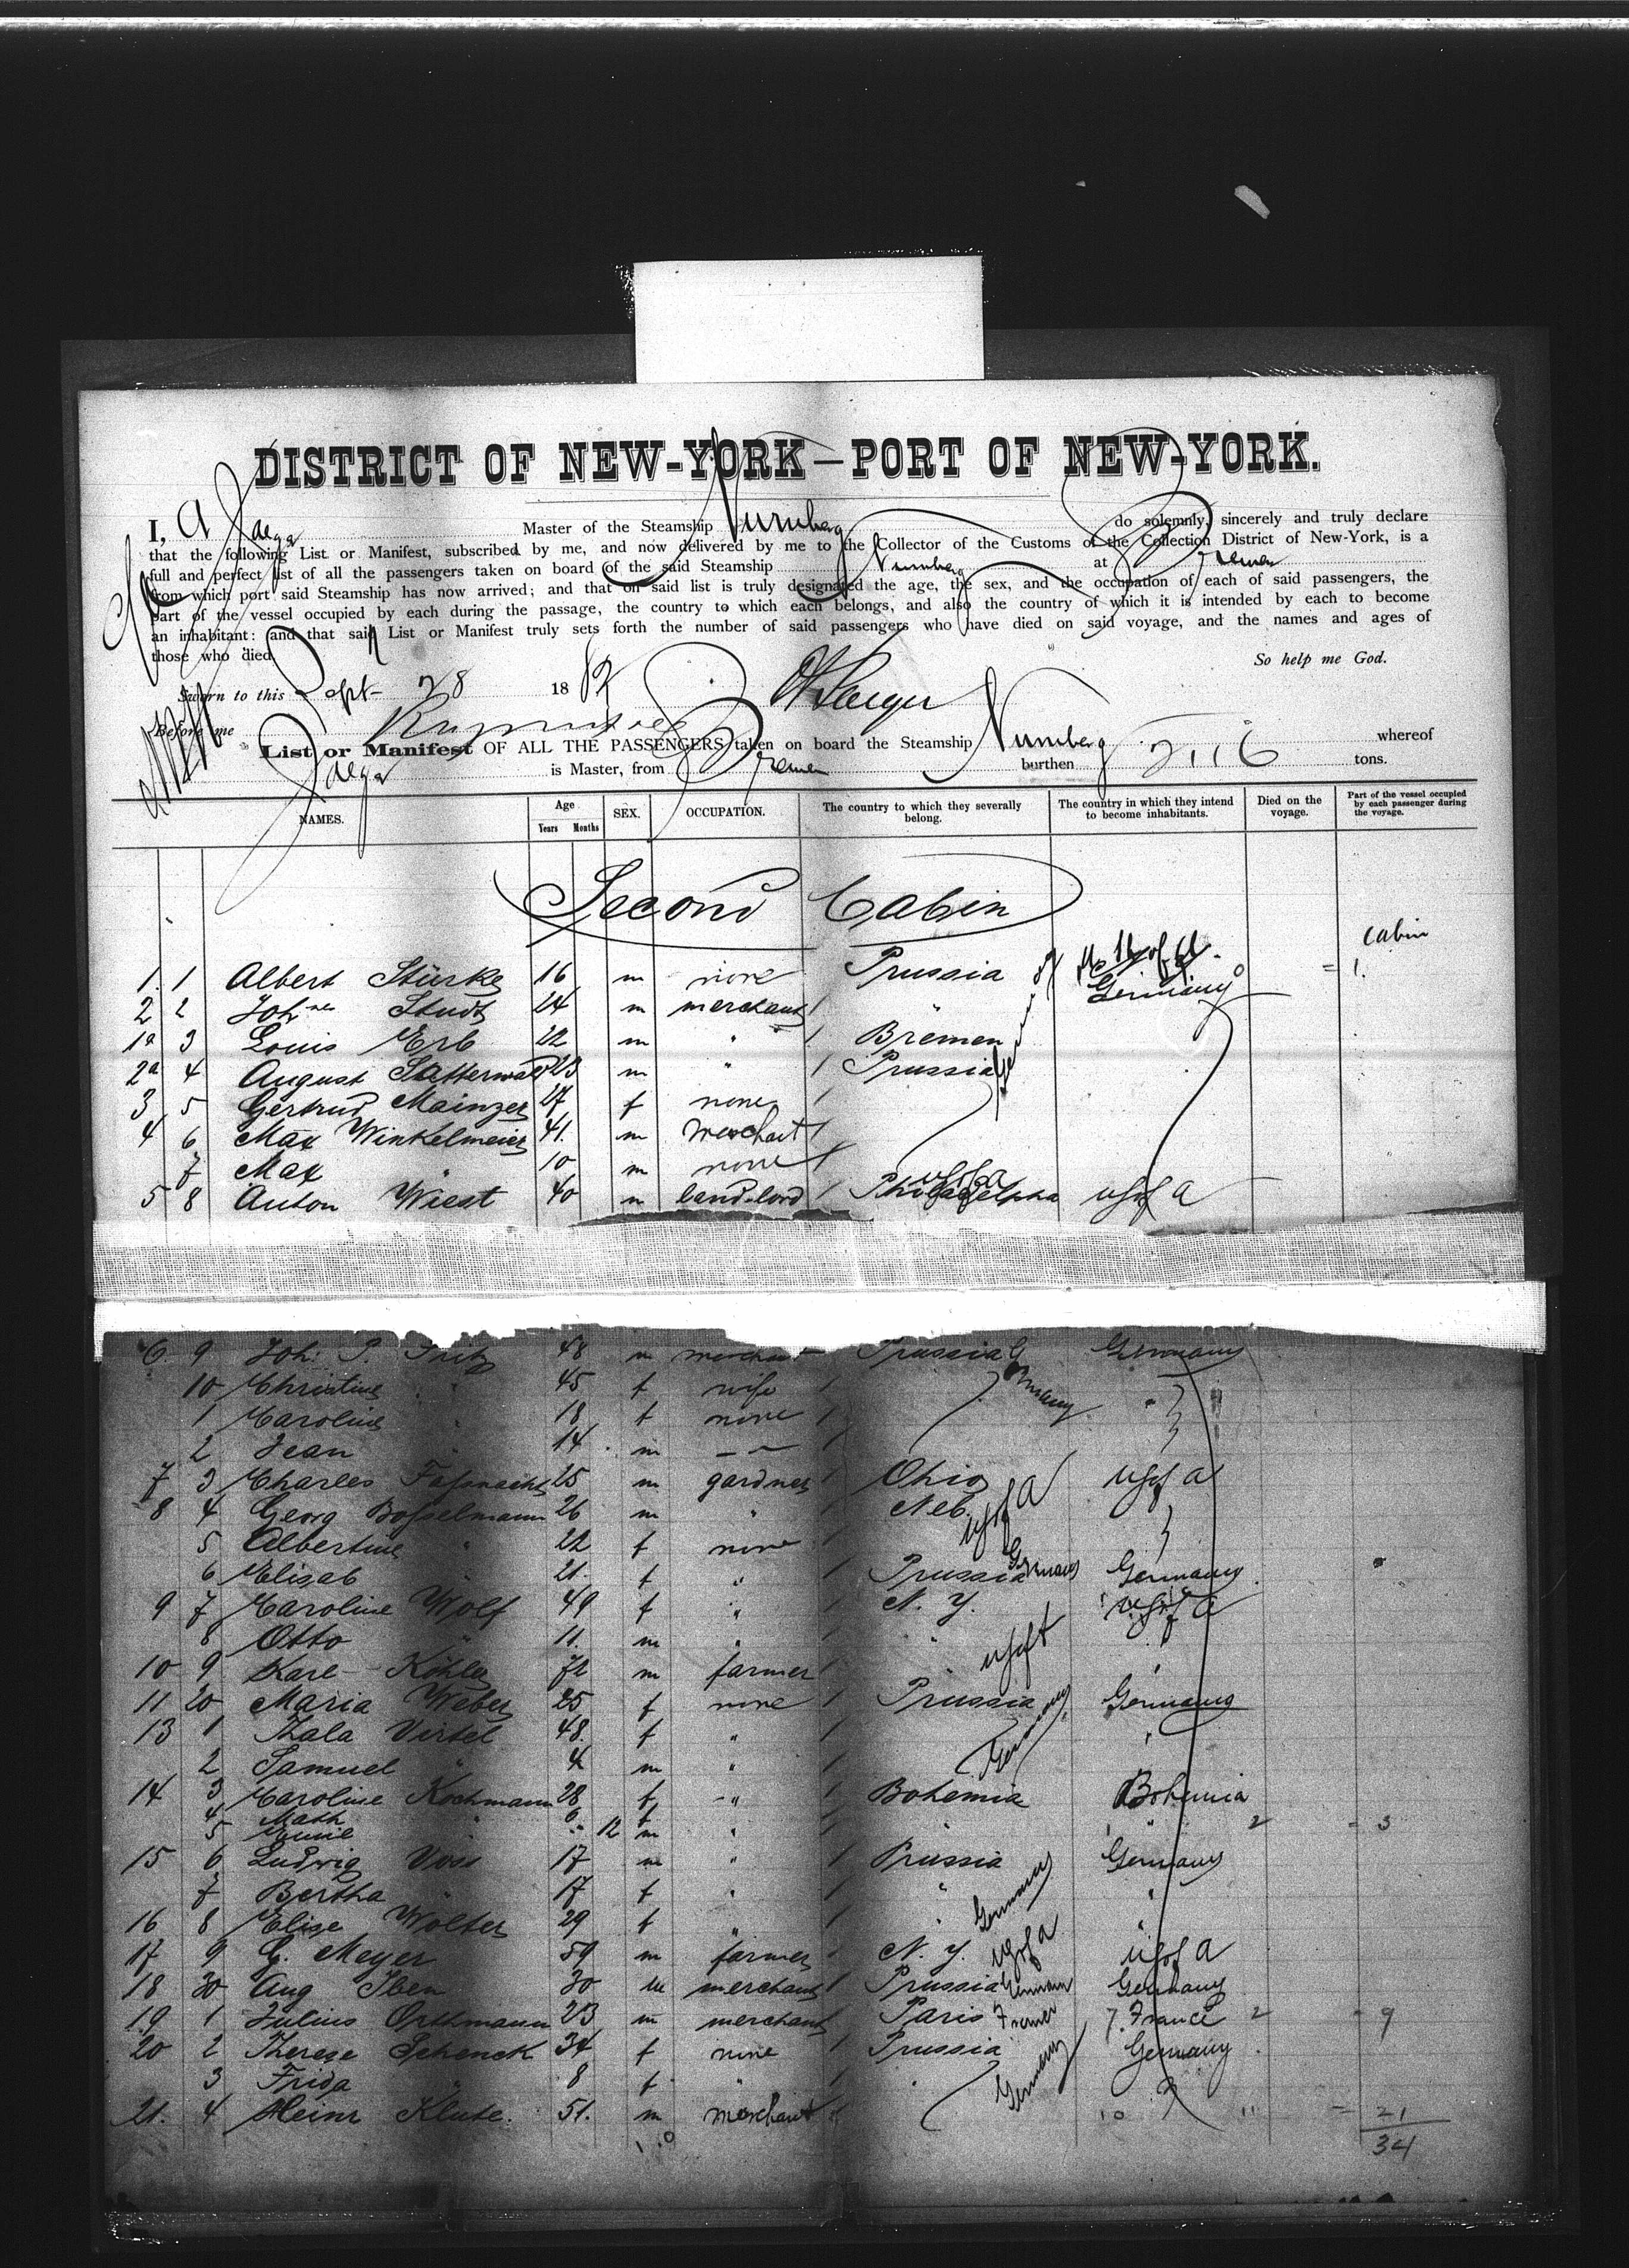 DISTRICT OF NEW-YORK—PORT OF NEW-YORK.
I, A Jaeger Master of the Steamship Nurnberg do solemnly, sincerely and truly declare
that the following List or Manifest, subscribed by me, and now delivered by me to the Collector of the Customs of the Collection District of New-York, is a
full and perfect list of all the passengers taken on board of the said Steamship Nurnberg at Bremen
from which port said Steamship has now arrived; and that on said list is truly designated the age, the sex, and the occupation of each of said passengers, the
part of the vessel occupied by each during the passage, the country to which each belongs, and also the country of which it is intended by each to become
an inhabitant: and that said List or Manifest truly sets forth the number of said passengers who have died on said voyage, and the names and ages of
those who died.
So help me God.
Sworn to this Sept 28 1882 A Jaeger
Before me
List or Manifest OF ALL THE PASSENGERS taken on board the Steamship Nurnberg whereof
Jaeger is Master, from Bremen burthen 2116 tons.
NAMES. Age Years Months SEX. OCCUPATION. The country to which they severally belong. The country in which they intend to become inhabitants. Died on the voyage. Part of the vessel occupied by each passenger during the voyage.
Second Cabin
cabin
1. 1 Albert Stürke 16 m none Prussia Germany = 1.
2 2 Joh. Studt 24 m merchant "
1a 3 Louis Erb 22 m " Bremen
2a 4 August Satterwald 23 m " Prussia
3 5 Gertrud Mainzer 27 f none
4 6 Max Winkelmeier 41. m merchant
7 Max " 10 m none
5 8 Anton Wiest 40 m land-lord Philadelphia U S of A U S of A
6. 9 Joh. P. Fritz 48 m merchant Prussia Germany Germany
10 Christine " 45 f wife "
1 Caroline " 18 f none
2 Jean " 14 m — "
7 3 Charles Faßnacht 25 m gardner Ohio U S of A
8 4 Georg Bosselmann 26 m " Neb. U S of A
5 Albertine " 22 f none
6 Elisab " 21. f " Prussia Germany Germany
9 7 Caroline Wolf 49 f " N. Y. U S of A
8 Otto " 11. m " " U S of A "
10 9 Karl Köhler 72 m farmer "
11 20 Maria Weber 25 f none Prussia Germany
13 1 Thala Virtel 48. f " Germany "
2 Samuel " 4 m "
14 3 Caroline Kochmann 28 f " Bohemia Bohemia
4 Math " 6 f
5 Emil " 12 m " " 2 - 3
15 6 Ludwig Voss 17 m " Prussia Germany
7 Bertha " 17 f " " Germany "
16 8 Elise Wolter 29 f " " "
17 9 G. Meyer 59 m farmer N. Y. U S of A U S of A
18 30 Aug Iben 30 m merchant Prussia German Germany
19 1 Julius Orthmann 23 m merchant Paris France France 2 - 9
20 2 Therese Schenck 34 f none Prussia Germany Germany
3 Frida " 8 f " "
21. 4 Heinr Klute. 51. m merchant 10 11 = 21
34